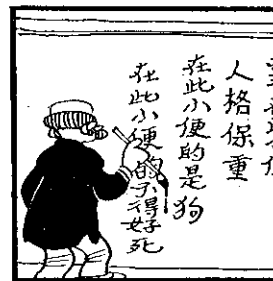 人格保重
在此小便的是狗
在此小便的不得好死